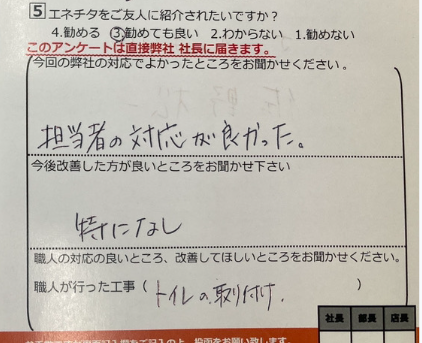 5 エネチタをご友人に紹介されたいですか？
4.勧める 3.勧めても良い 2.わからない 1.勧めない
このアンケートは直接弊社 社長に届きます。
今回の弊社の対応でよかったところをお聞かせください。
担当者の対応が良かった。
今後改善した方が良いところをお聞かせ下さい
特になし
職人の対応の良いところ、改善してほしいところをお聞かせください。
職人が行った工事（ トイレの取り付け. ）
社長 部長 店長